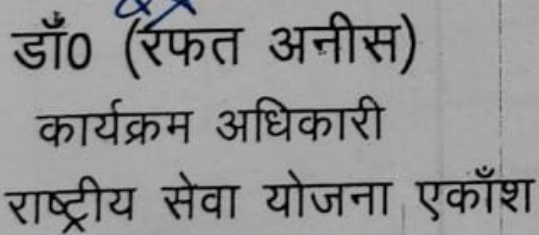 डॉँ0 (रफत अनीस)
कार्यक्रम अधिकारी
राष्ट्रीय सेवा योजना एकाँश